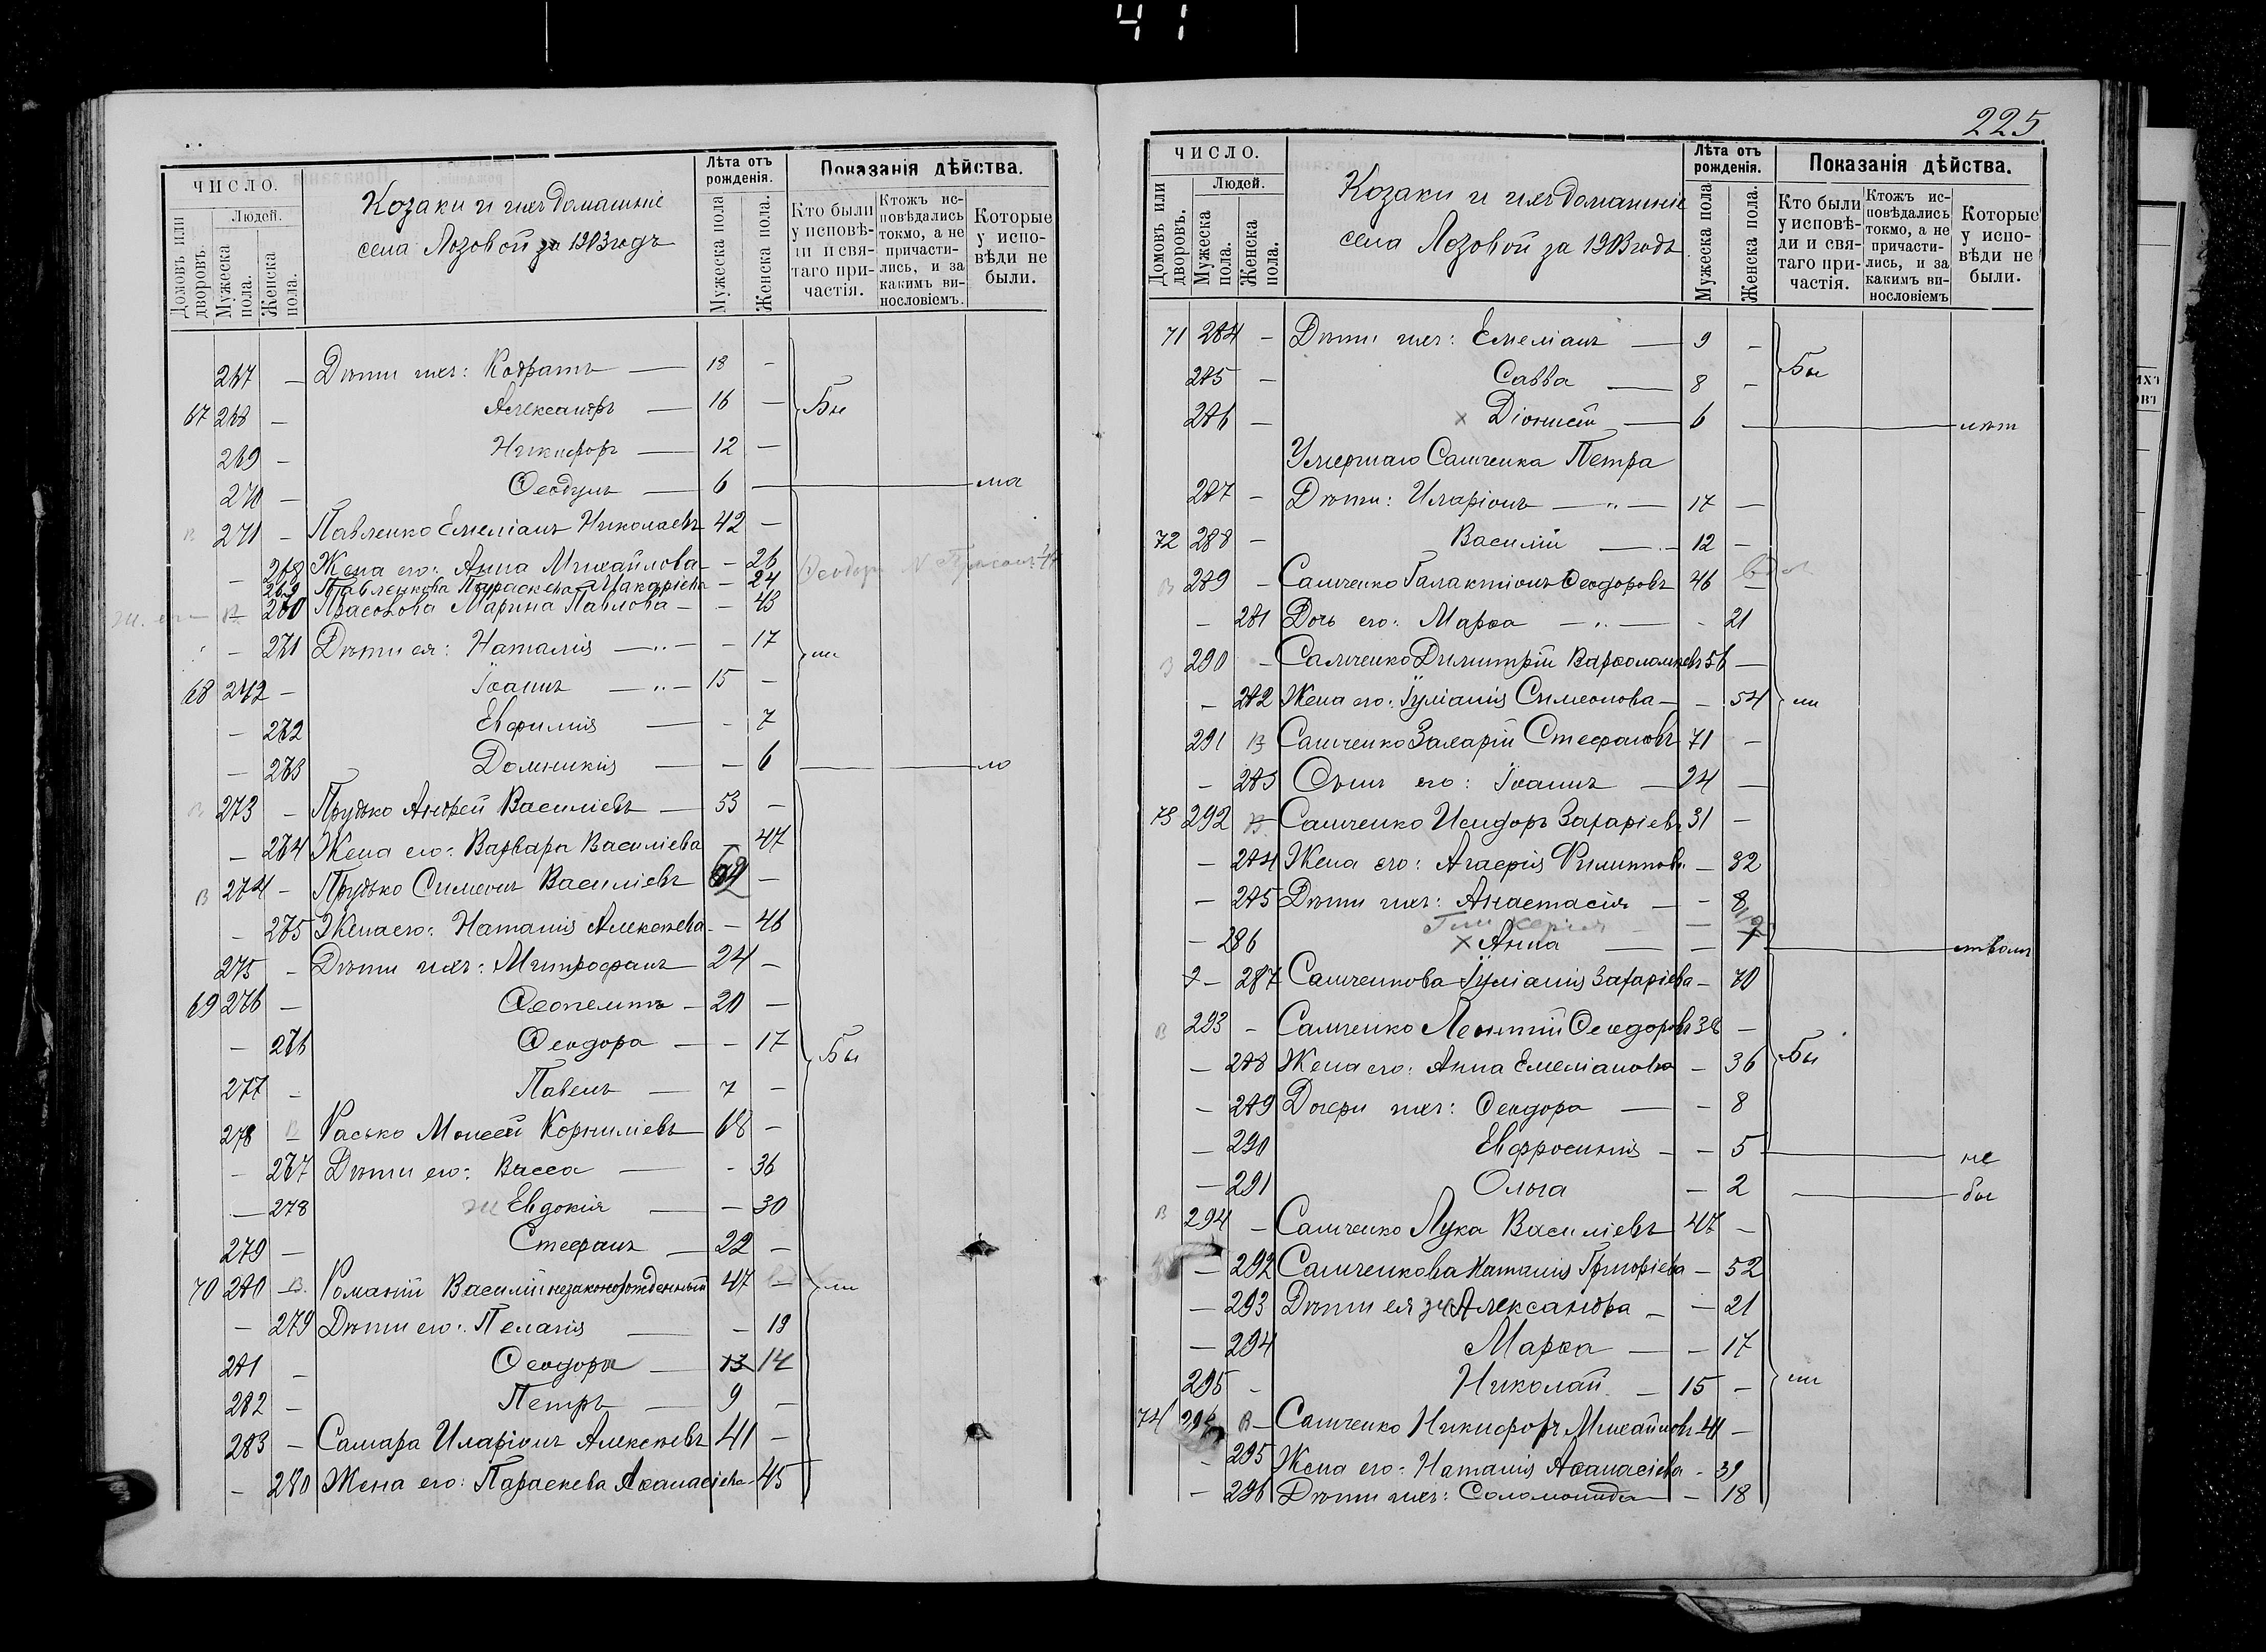 41
ЧИСЛО.
Домовъ или дворовъ.
Людей.
Мужеска пола.
Женска пола.
Козаки и ихъ домашніе
села Лозовой за 1903 годъ
Лѣта отъ рожденія.
Мужеска пола
Женска пола.
Показанія дѣйства.
Кто были у исповѣди и святаго причастія.
Ктожъ исповѣдались токмо, а не причастились, и за какимъ винословіемъ.
Которые у исповѣди не были.
267 — Дѣти ихъ: Кодратъ — 18 —
67 268 — Александръ — 16 — Бы
269 — Никифоръ — 12 —
270 — Ѳеодулъ — 6 — ма
В 271 — Павленко Емеліанъ Николаевъ 42 —
— 268 Жена его: Анна Михайлова — 26
269 Павленкова Параскева Макаріева — 24
— 260 Прасолова Марина Павлова — 43
— 271 Дѣти ея: Наталія — — 17 ли
68 272 — Іоаннъ — 15 —
— 272 Евфимія — — 7
— 273 Домникія — — 6 ло
В 273 — Прудько Андрей Василіевъ — 53 —
— 274 Жена его: Варвара Василіева — 47
В 274 — Прудько Симеонъ Василіевъ 62 —
— 275 Жена его: Наталія Алексѣева — 46
275 — Дѣти ихъ: Митрофанъ — 24 —
69 276 — Ѳеопемптъ — 20 —
— 276 Ѳеодора — — 17 Бы
277 — Павелъ — 7 —
278 В Расько Моисей Корниліевъ — 68 —
— 277 Дѣти его: Васса — — 36
— 278 Евдокія — — 30
279 — Стефанъ — 22 —
70 280 В Романій Василій незаконорожденный 47 — ли
— 279 Дѣти его: Пелагія — — 19
281 — Ѳеодора — 13 14
282 — Петръ — 9 —
283 — Самара Иларіонъ Алексѣевъ 41 —
— 280 Жена его: Параскева Аѳанасіева — 45
225
ЧИСЛО.
Домовъ или дворовъ.
Людей.
Мужеска пола.
Женска пола.
Козаки и ихъ домашніе
села Лозовой за 1903 годъ
Лѣта отъ рожденія.
Мужеска пола
Женска пола.
Показанія дѣйства.
Кто были у исповѣди и святаго причастія.
Ктожъ исповѣдались токмо, а не причастились, и за какимъ винословіемъ
Которые у исповѣди не были.
71 284 — Дѣти ихъ: Емеліанъ — 9 — Бы
285 — Савва — 8 —
286 — × Діонисій — 6 — лѣт
Умершаго Самченка Петра
287 — Дѣти: Иларіонъ — 17 —
72 288 — Василій — 12 —
В 289 — Самченко Галактіонъ Ѳеодоровъ 46 —
— 281 Дочь его: Марѳа — — 21
В 290 — Самченко Димитрій Варѳоломѣевъ 56 —
— 282 Жена его: Іуліанія Симеонова — — 54 ли
291 В Самченко Захарій Стефановъ 71 —
— 283 Сынъ его: Іоаннъ — 24 —
73 292 В Самченко Исидоръ Захаріевъ 31 —
— 284 Жена его: Агафія Филиппова — 32
— 285 Дѣти ихъ: Анастасія — — 8
— 286 × Анна — — 7 ством
— 287 Самченкова Іуліанія Захаріева — 70
В 293 — Самченко Леонтій Ѳеодоровъ 38 —
— 288 Жена его: Анна Емеліанова — 36 Бы
— 289 Дочери ихъ: Ѳеодора — — 8
— 290 Евфросинія — — 5 не
— 291 Ольга — 2 бы
В 294 — Самченко Лука Василіевъ 47 —
— 292 Самченкова Наталія Григоріева — 52
— 293 Дѣти ея Александра — — 21
— 294 Марѳа — — 17
295 — Николай — 15 — ли
74 296 В Самченко Никифоръ Михайловъ 41 —
— 295 Жена его: Наталія Аѳанасіева — 39
— 296 Дѣти ихъ: Соломонида — 18